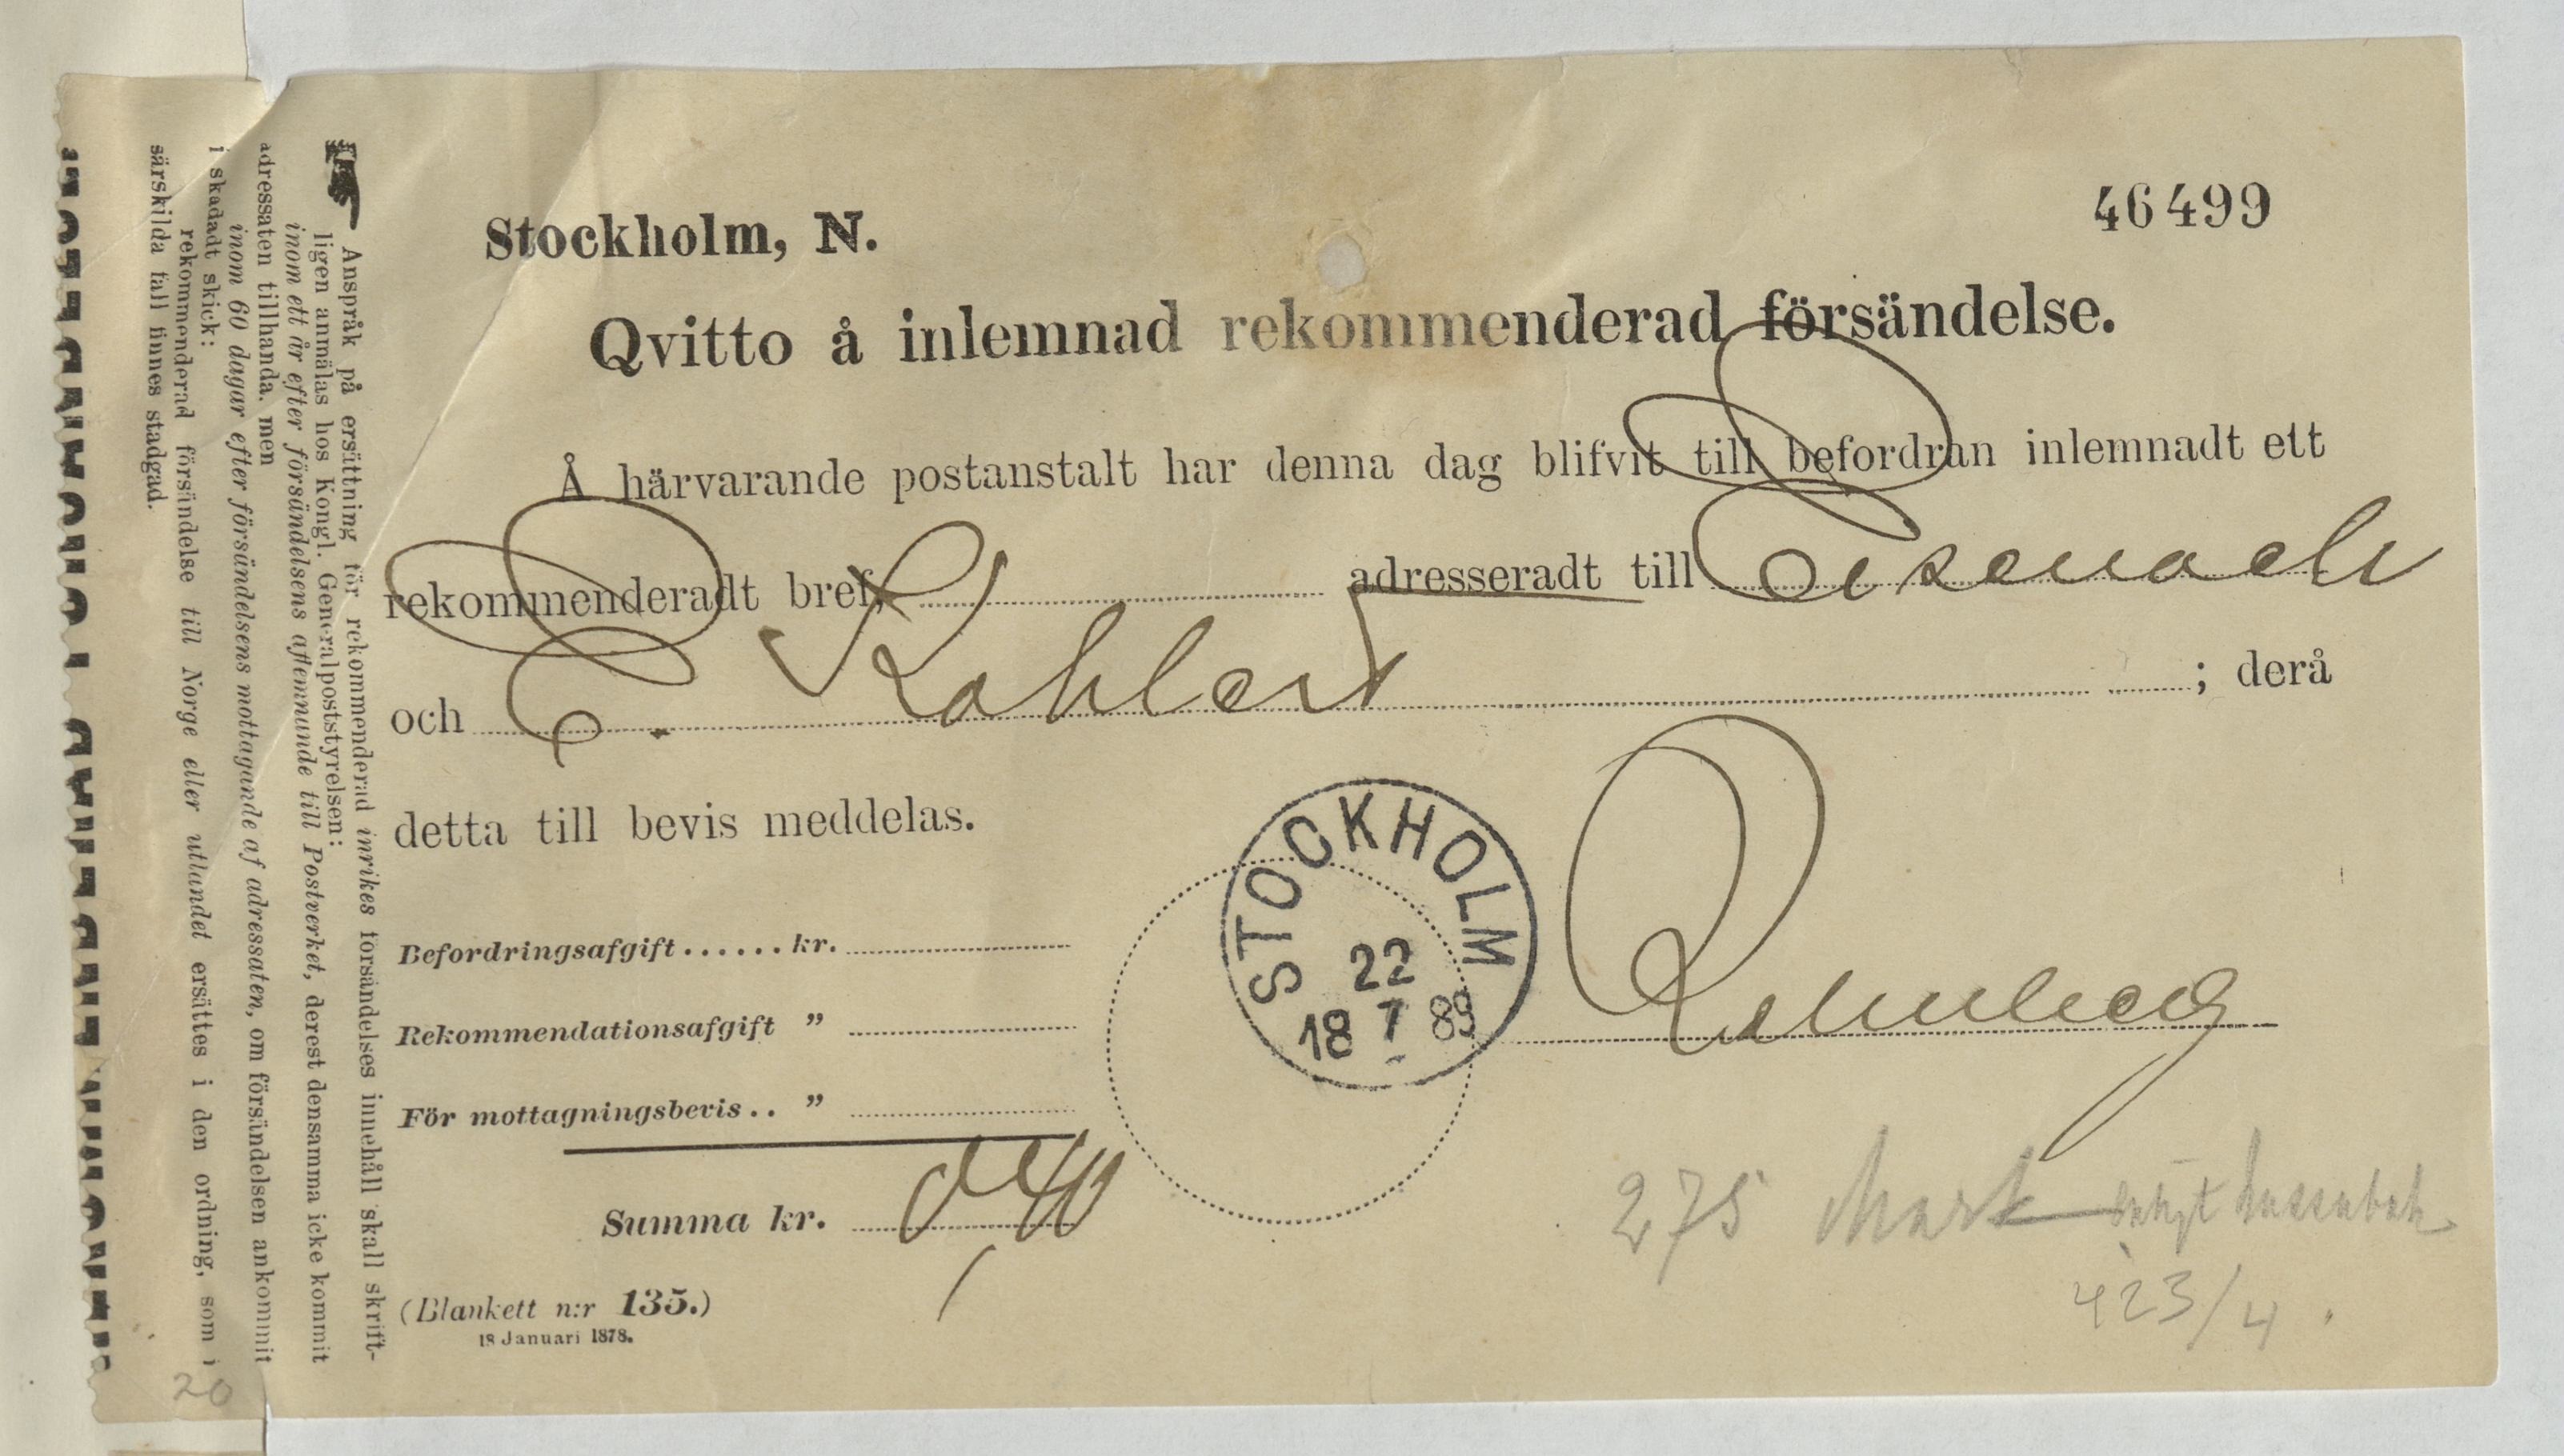 46499
Stockholm, N.
Qvitto å inlemnad rekommenderad försändelse.
Å härvarande postanstalt har denna dag blifvit till befordran inlemnadt ett
rekommenderadt bref, adresseradt till Eisenach
och C. Kahlert ; derå
detta till bevis meddelas.
STOCKHOLM
22
18 7 89
Befordringsafgift...... kr.
Rekommendationsafgift "
För mottagningsbevis.. "
Summa kr.
275 Mark
423/4.
(Blankett n:r 135.)
18 Januari 1878.
Anspråk på ersättning för rekommenderad inrikes försändelses innehåll skall skrift-
ligen anmälas hos Kongl. Generalpoststyrelsen:
inom ett år efter försändelsens aflemnande till Postverket, derest densamma icke kommit
adressaten tillhanda, men
inom 60 dagar efter försändelsens mottagande af adressaten, om försändelsen ankommit
i skadadt skick:
rekommenderad försändelse till Norge eller utlandet ersättes i den ordning, som i
särskilda fall finnes stadgad.
20